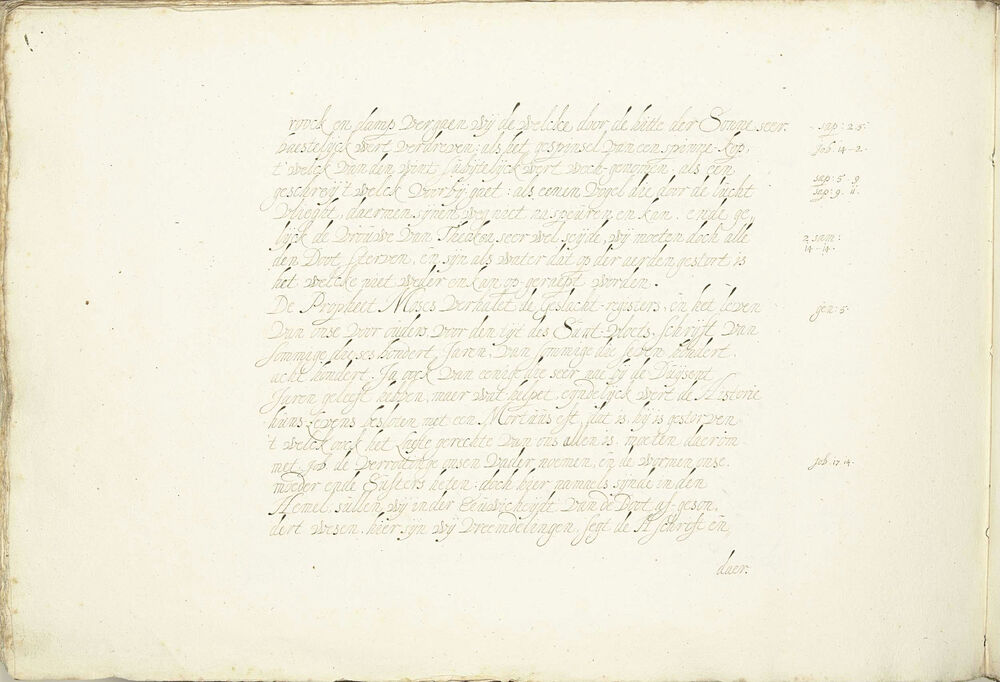 roock en damp vergaen wij de welcke door de hitte der Sonne seer. sap: 2.5
haestelijck wert verdreven: als het gespinsel van een spinne-kop, Job. 14-2.
t' welck van den wint subijtelijck wert wech-genomen, als een
geschreij 't welck voorbij gaet: als eenen vogel die door de lucht sap: 5. 9
vlieght, daermen sijnen weg niet naspeuren en kan. ende ge, sap: 9. 11.
lijck de vrouwe van Thekoa seer wel seijde, wij moeten doch alle 2. sam:
den Doot sterven, en sijn als water dat op der aerden gestort is 14-14.
het welcke niet weder en kan op-geraept worden.
De Propheet Moses verhaelt de Geslacht-registers, en het leven gen: 5.
van onse voor ouders, voor den tijt des Sunt-vloets, schrijft van
sommige die ses hondert Jaren, van sommige die seven hondert.
acht hondert. Ja oock van eenige die seer nae bij de Duijsent
Jaren geleeft hebben, maer wat helpet, eyndelijck wert de Historie
haers Levens besloten met een Mortuus est, dat is hij is gestorven
't welck oock het leste gerechte van ons allen is, moeten daerom
met Job de verrottinge onsen Vader noemen, en de wormen onse. Job. 17. 14.
moeder ende Susters heten. doch hier namaels sijnde in den
Hemel sullen wij inder Eeuwicheijt van de Doot af-geson,
dert wesen. hier sijn wij vreemdelingen, segt de H schrift en,
daer: